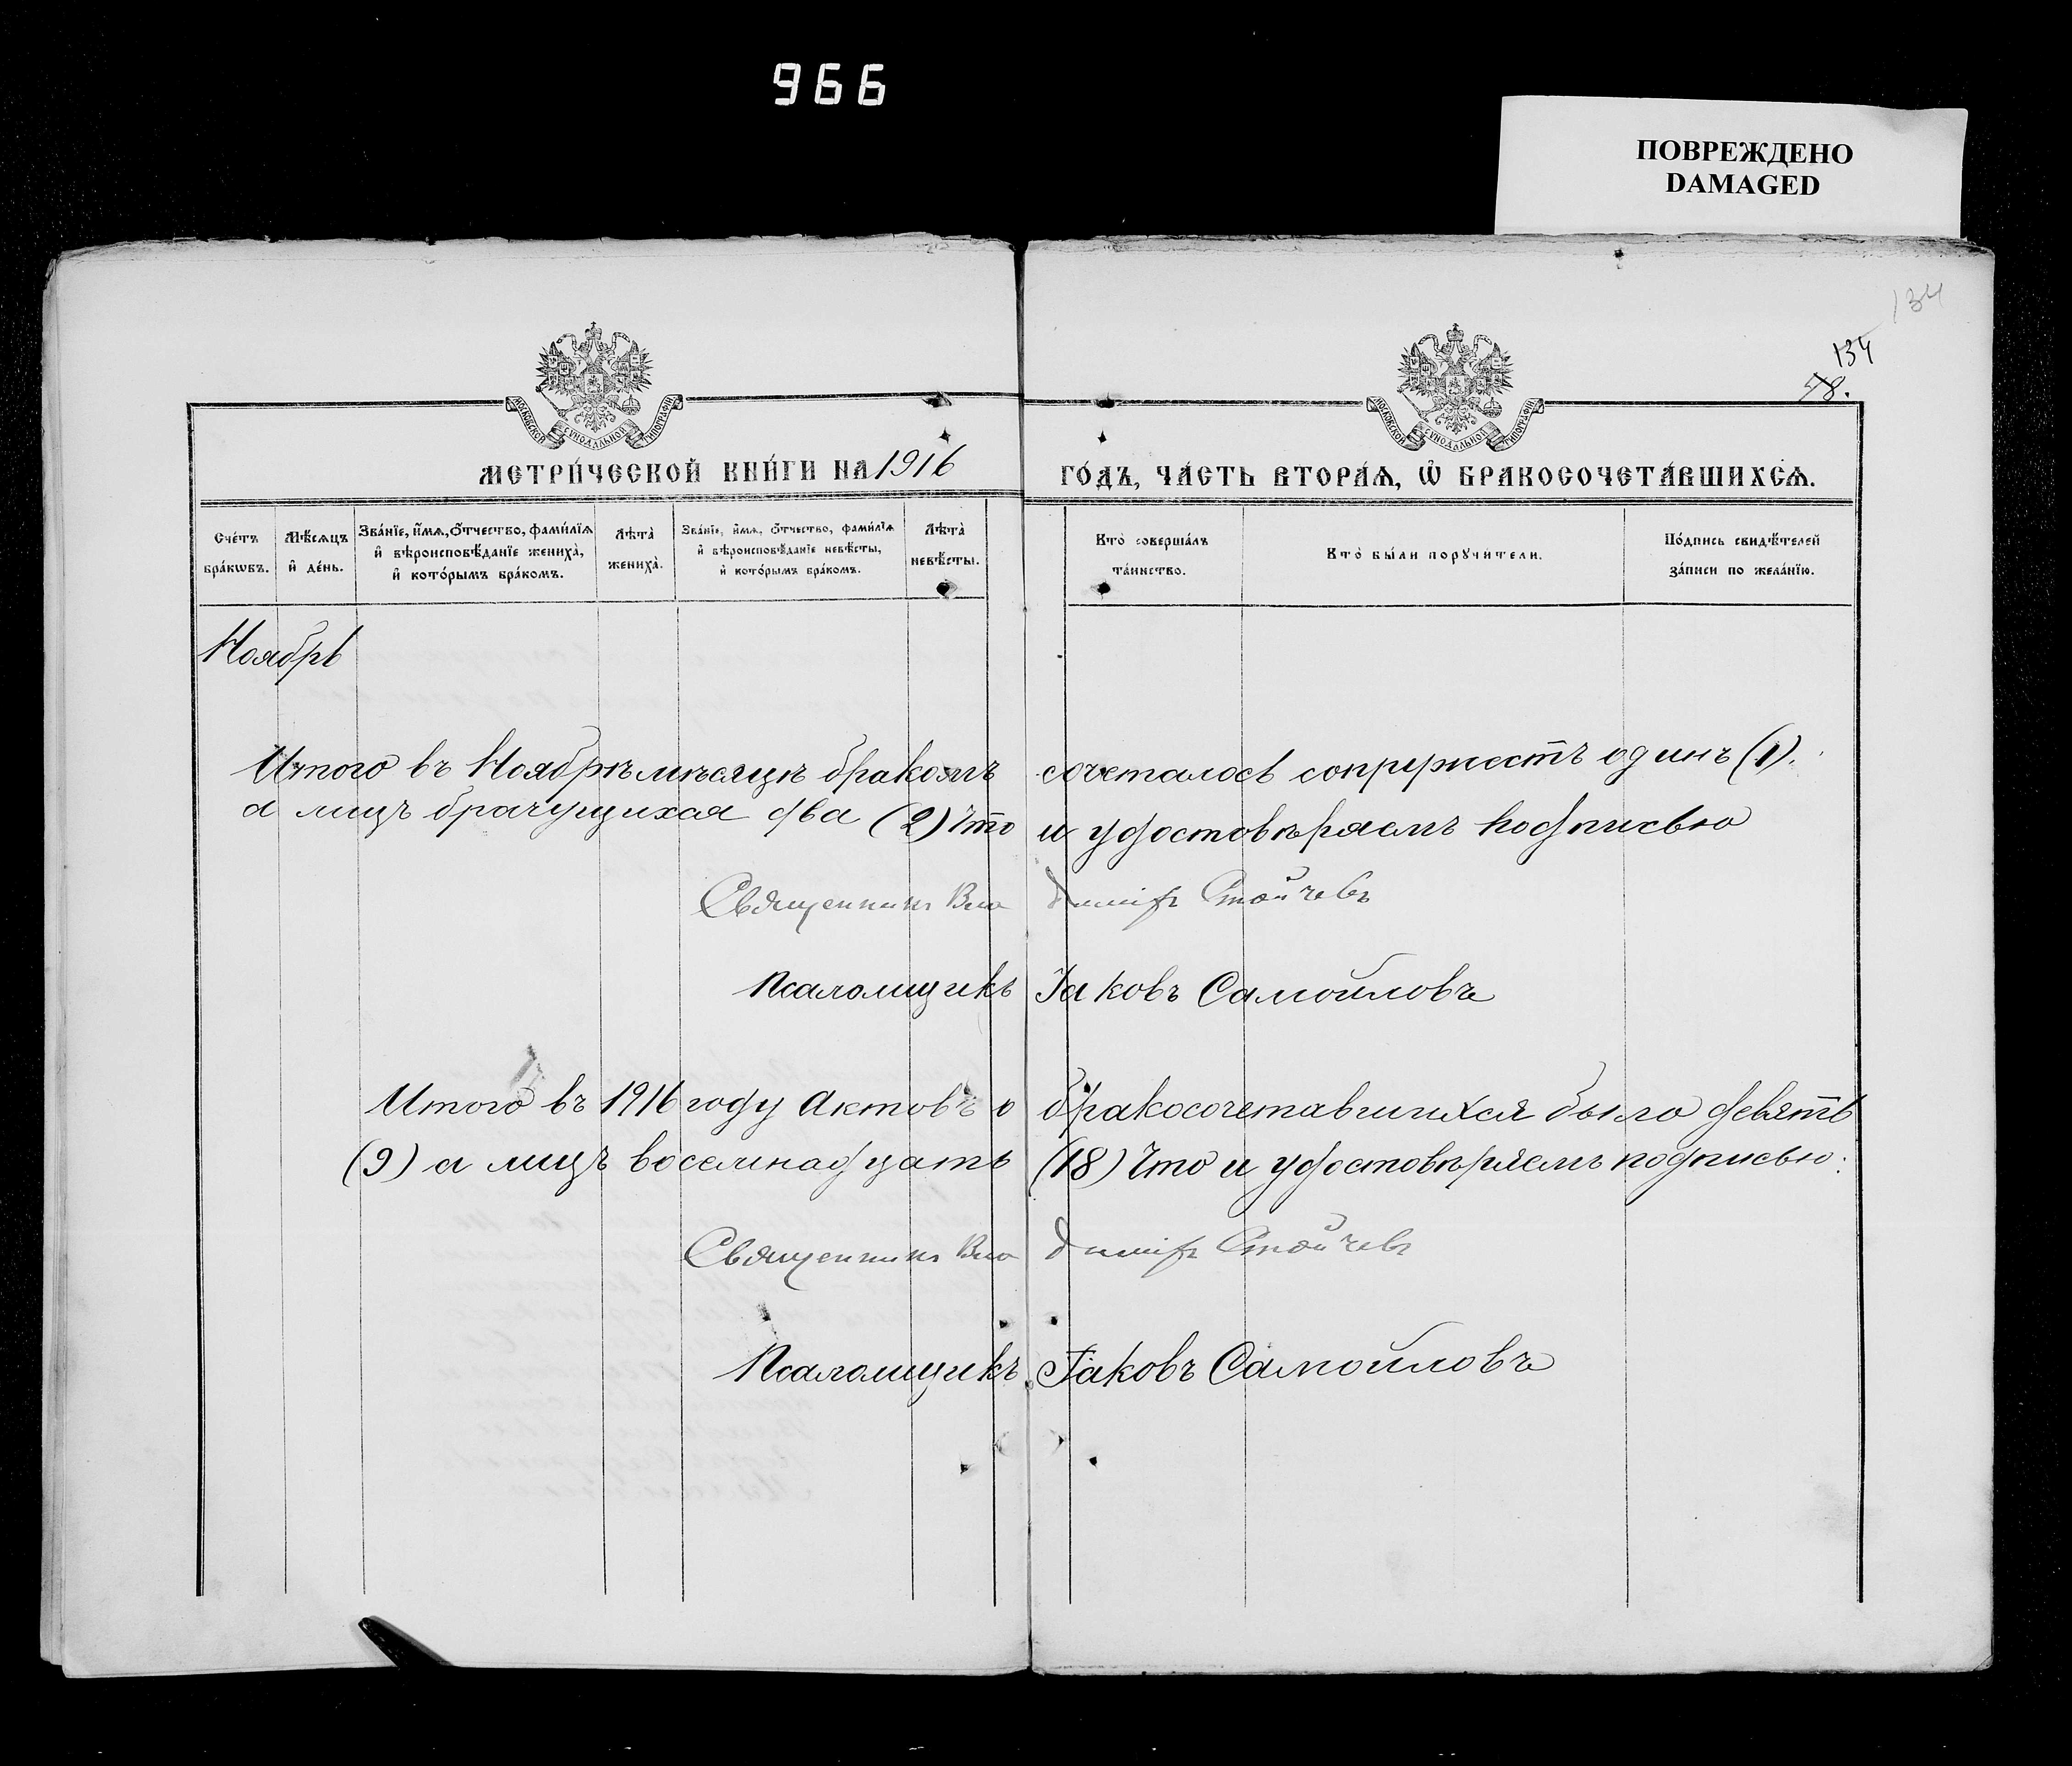 966
ПОВРЕЖДЕНО
DAMAGED
134
134
48.
МОСКОВСКОЙ СУНОДАЛЬНОЙ ТИПОГРАФІИ
МОСКОВСКОЙ СУНОДАЛЬНОЙ ТИПОГРАФІИ
МЕТРИ́ЧЕСКОЙ КНИ́ГИ НА 1916 ГО́ДЪ, ЧА́СТЬ ВТОРА́Ѧ, Ѡ҆ БРАКОСОЧЕТА́ВШИХСѦ.
Сче́тъ бра́кѡвъ.
Мѣ́сѧцъ и҆ де́нь.
Зва́нїе, и҆́мѧ, ѻ҆́тчество, фами́лїѧ и҆ вѣроисповѣ́данїе жениха̀, и҆ кото́рымъ бра́комъ.
Лѣ́та̀ жениха̀.
Зва́нїе, и҆́мѧ, ѻ҆́тчество, фами́лїѧ и҆ вѣроисповѣ́данїе невѣ́сты, и҆ кото́рымъ бра́комъ.
Лѣ́та̀ невѣ́сты.
Кто̀ соверша́лъ та́инство.
Кто̀ бы́ли порꙋчи́тели.
По́дпись свидѣ́телей за́писи по жела́нїю.
Ноябрь
Итого въ Ноябрѣ мѣсяцѣ бракомъ сочеталось супружествъ одинъ (1).
а лицъ брачущихся два (2) что и удостовѣряемъ подписью
Священникъ Владимiръ Стойчевъ
Псаломщикъ Іаковъ Самойловъ
Итого въ 1916 году актовъ о бракосочетавшихся было девять
(9) а лицъ восемнадцать (18) что и удостовѣряемъ подписью:
Священникъ Владимiръ Стойчевъ
Псаломщикъ Іаковъ Самойловъ